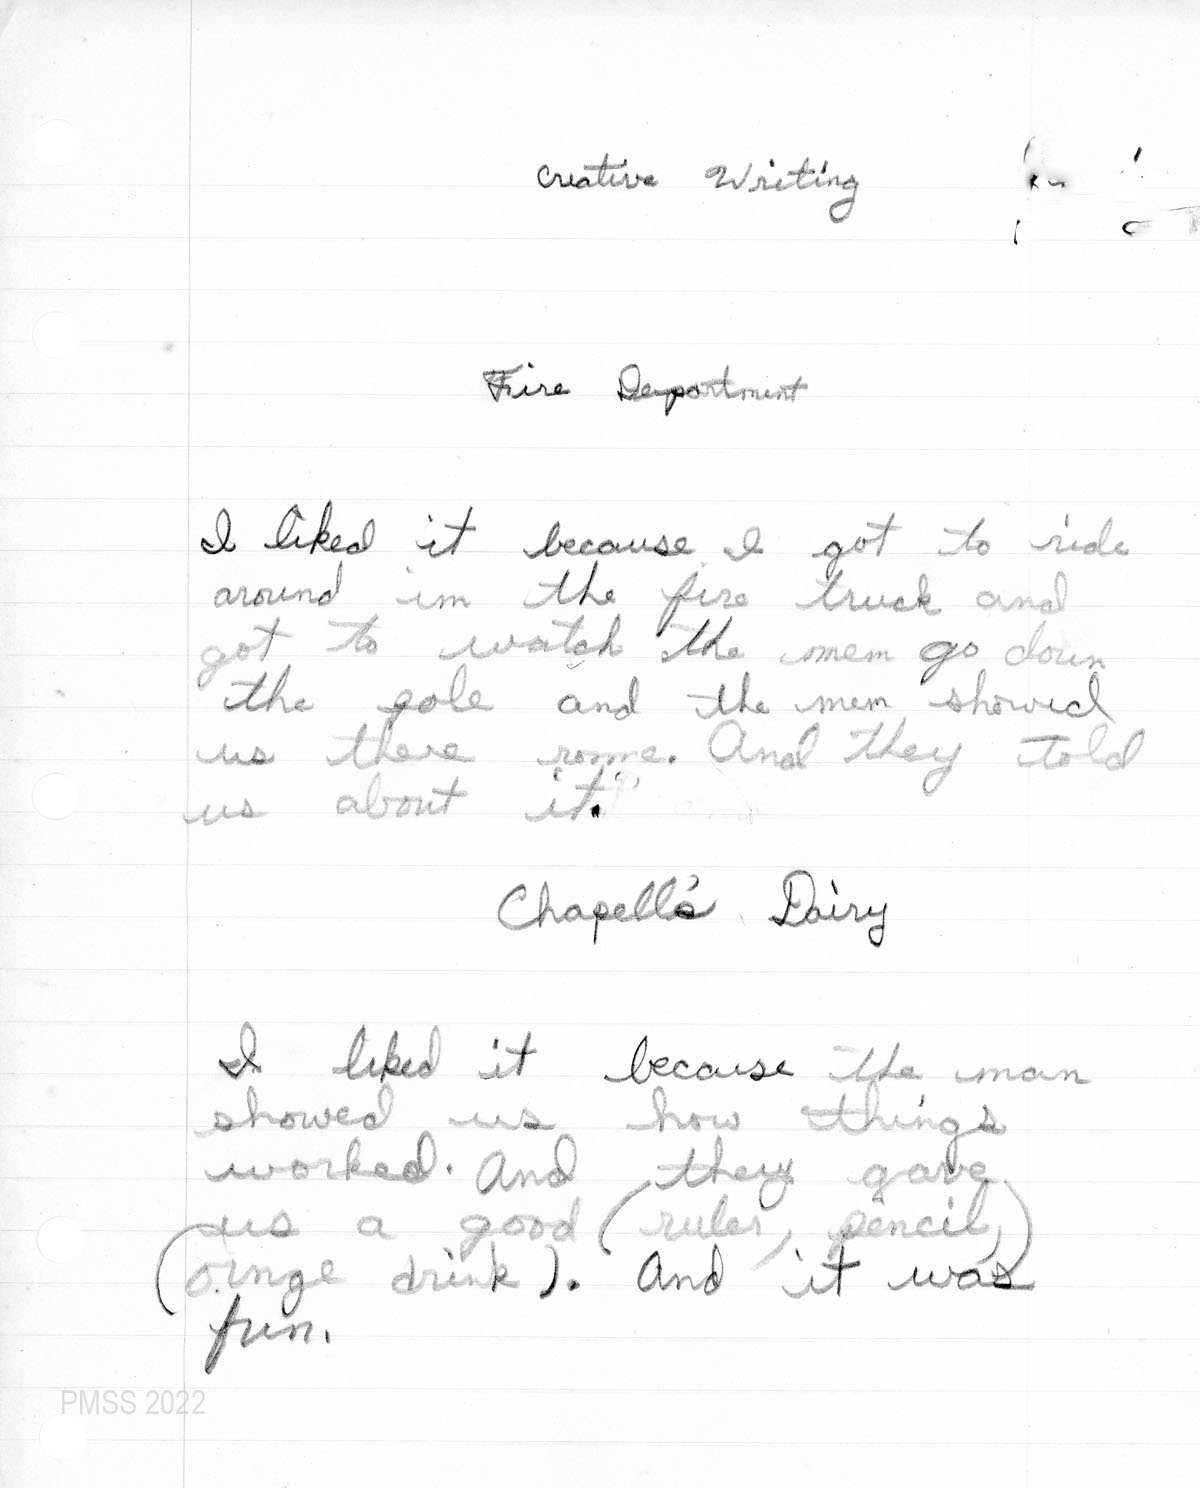 Creative Writing
Fire Department
I liked it because I got to ride
around im the fire truck and
got to watch the mem go down
the pole and the mem showed
us there rome. And they told
us about it.
Chapell's Dairy
I liked it because the man
showed us how things
worked. And they gave
us a good (ruler, pencil,)
(oringe drink). And it was
fun.
PMSS 2022